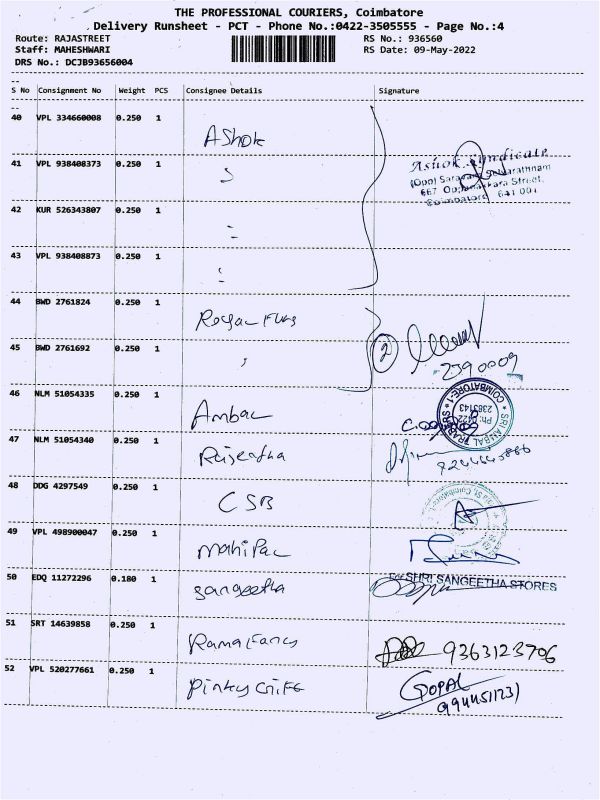 THE PROFESSIONAL COURIERS, Coimbatore
Delivery Runsheet - PCT - Phone No.:0422-3505555 - Page No.:4
Route: RAJASTREET RS No.: 936560
Staff: MAHESHWARI RS Date: 09-May-2022
DRS No.: DCJB93656004
S No Consignment No Weight PCS Consignee Details Signature
40 VPL 334660008 0.250 1 Ashok
41 VPL 938408373 0.250 1
Ashok Syndicate
667 Oppanakkara Street,
Coimbatore 641 001
42 KUR 526343807 0.250 1
43 VPL 938408873 0.250 1
44 BWD 2761824 0.250 1 Royal Funs
45 BWD 2761692 0.250 1 2
2390009
46 NLM 51054335 0.250 1 Ambal
SRI AMBAL TRADERS COIMBATORE-1
Ph: 0422 2383143
47 NLM 51054340 0.250 1 Rajeatha
48 DDG 4297549 0.250 1 CSB
49 VPL 498900047 0.250 1 Mahipal
50 EDQ 11272296 0.180 1 Sangeetha SHRI SANGEETHA STORES
51 SRT 14639858 0.250 1 Rama Fancy 9363123706
52 VPL 520277661 0.250 1 Pinky Gift GOPAL